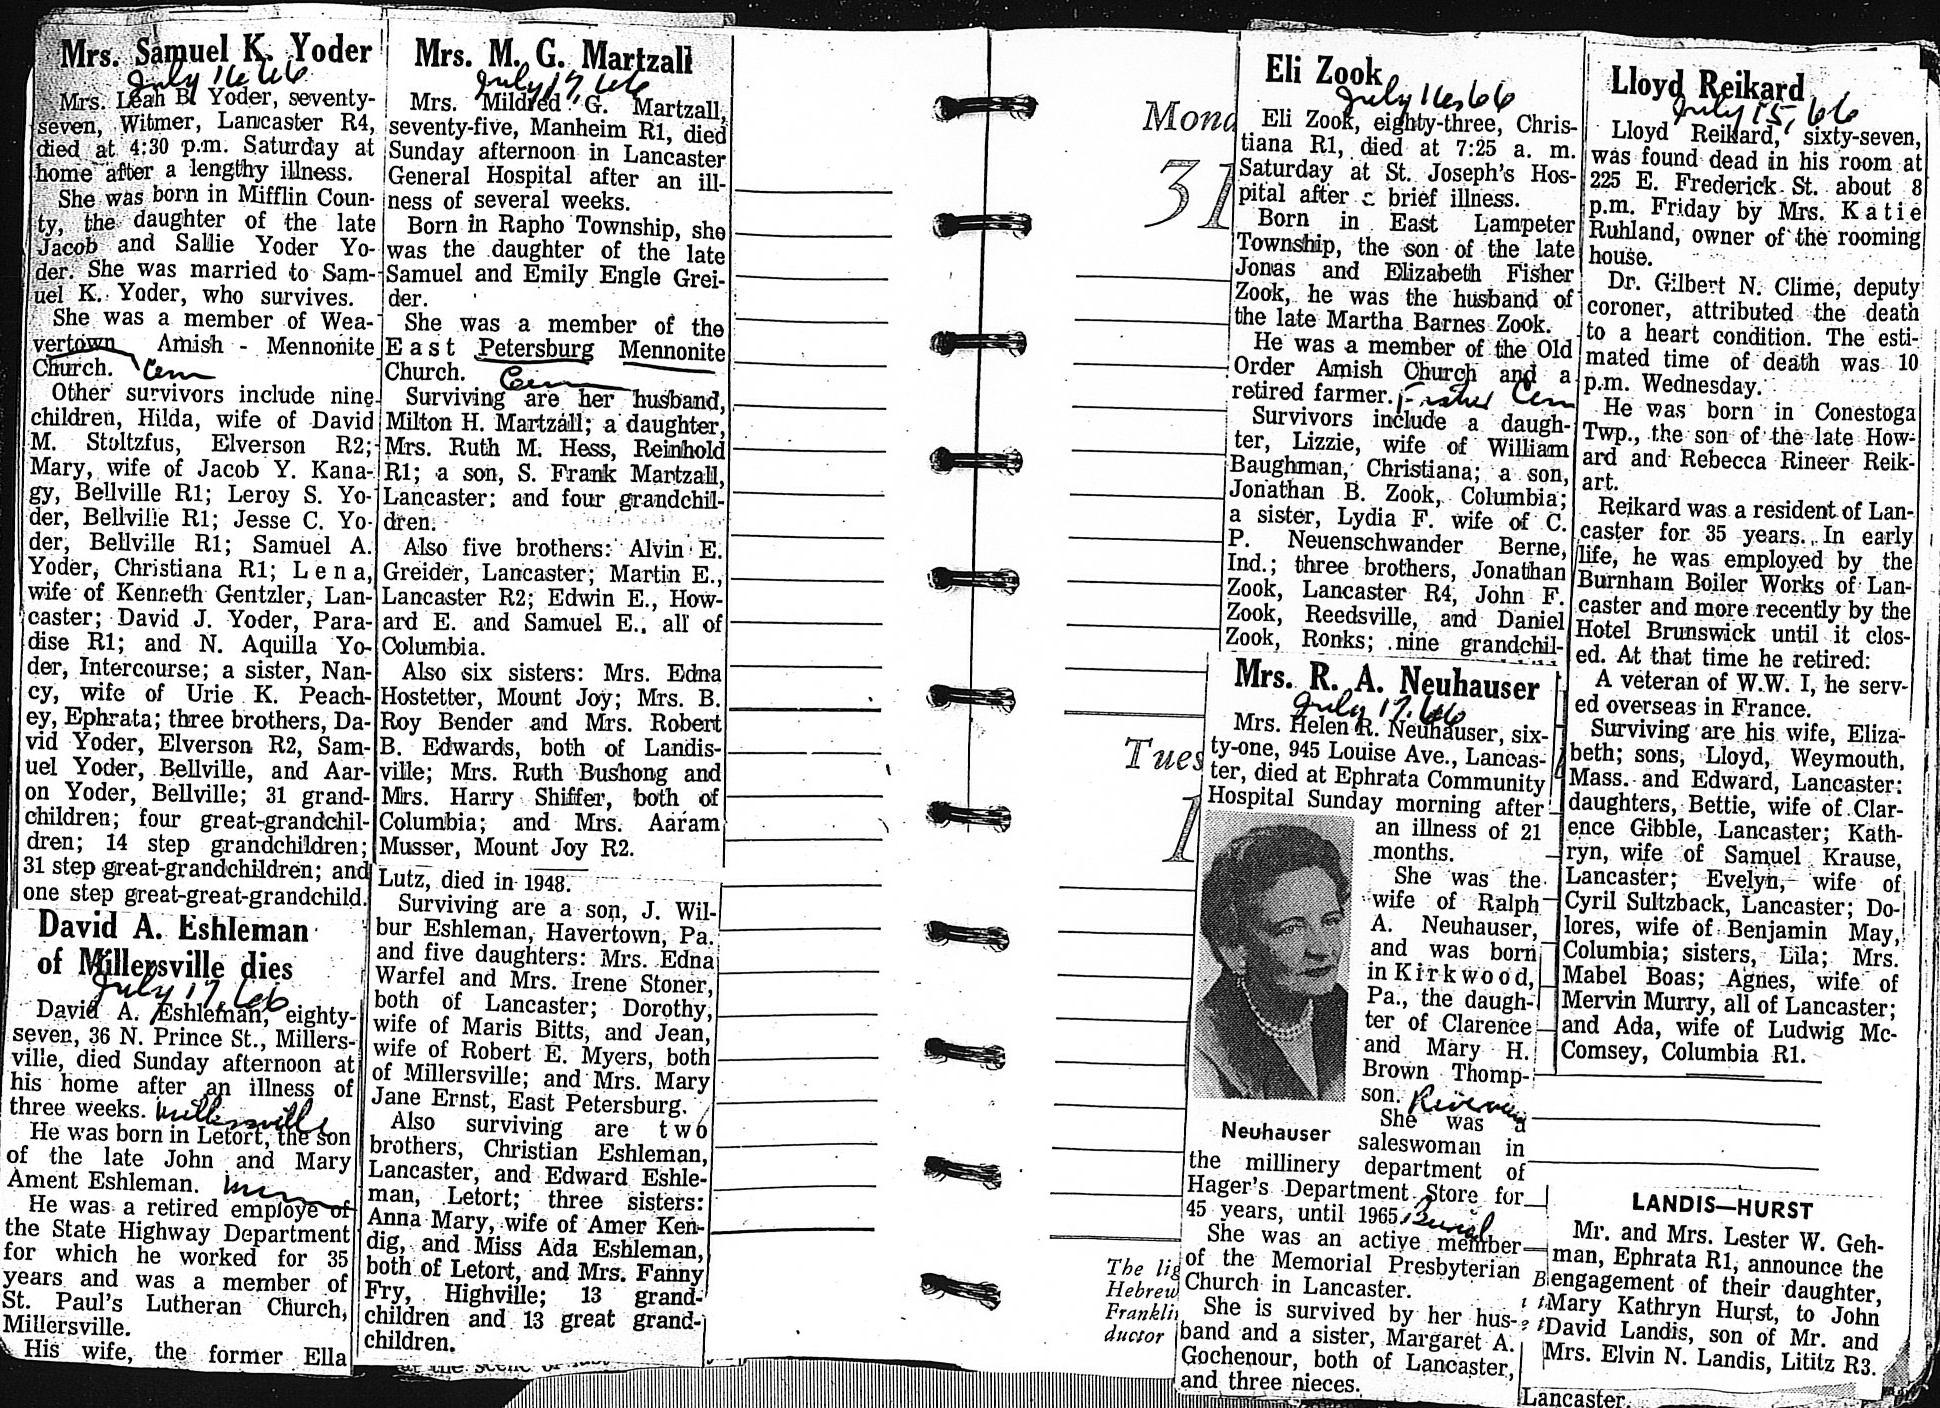 Mrs. Samuel K. Yoder
July 16 66
Mrs. Leah B. Yoder, seventy-
seven, Witmer, Lancaster R4,
died at 4:30 p.m. Saturday at
home after a lengthy illness.
She was born in Mifflin Coun-
ty, the daughter of the late
Jacob and Sallie Yoder Yo-
der. She was married to Sam-
uel K. Yoder, who survives.
She was a member of Wea-
vertown Amish - Mennonite
Church. Cem
Other survivors include nine
children, Hilda, wife of David
M. Stoltzfus, Elverson R2;
Mary, wife of Jacob Y. Kana-
gy, Bellville R1; Leroy S. Yo-
der, Bellville R1; Jesse C. Yo-
der, Bellville R1; Samuel A.
Yoder, Christiana R1; Lena,
wife of Kenneth Gentzler, Lan-
caster; David J. Yoder, Para-
dise R1; and N. Aquilla Yo-
der, Intercourse; a sister, Nan-
cy, wife of Urie K. Peach-
ey, Ephrata; three brothers, Da-
vid Yoder, Elverson R2, Sam-
uel Yoder, Bellville, and Aar-
on Yoder, Bellville; 31 grand-
children; four great-grandchil-
dren; 14 step grandchildren;
31 step great-grandchildren; and
one step great-great-grandchild.
David A. Eshleman
of Millersville dies
July 17, 66
David A. Eshleman, eighty-
seven, 36 N. Prince St., Millers-
ville, died Sunday afternoon at
his home after an illness of
three weeks. Millersville
He was born in Letort, the son
of the late John and Mary
Ament Eshleman.
He was a retired employe of
the State Highway Department
for which he worked for 35
years and was a member of
St. Paul's Lutheran Church,
Millersville.
His wife, the former Ella
Mrs. M. G. Martzall
July 17, 66
Mrs. Mildred G. Martzall,
seventy-five, Manheim R1, died
Sunday afternoon in Lancaster
General Hospital after an ill-
ness of several weeks.
Born in Rapho Township, she
was the daughter of the late
Samuel and Emily Engle Grei-
der.
She was a member of the
East Petersburg Mennonite
Church. Cem
Surviving are her husband,
Milton H. Martzall; a daughter,
Mrs. Ruth M. Hess, Reinhold
R1; a son, S. Frank Martzall,
Lancaster; and four grandchil-
dren.
Also five brothers: Alvin E.
Greider, Lancaster; Martin E.,
Lancaster R2; Edwin E., How-
ard E. and Samuel E., all of
Columbia.
Also six sisters: Mrs. Edna
Hostetter, Mount Joy; Mrs. B.
Roy Bender and Mrs. Robert
B. Edwards, both of Landis-
ville; Mrs. Ruth Bushong and
Mrs. Harry Shiffer, both of
Columbia; and Mrs. Aaram
Musser, Mount Joy R2.
Lutz, died in 1948.
Surviving are a son, J. Wil-
bur Eshleman, Havertown, Pa.
and five daughters: Mrs. Edna
Warfel and Mrs. Irene Stoner,
both of Lancaster; Dorothy,
wife of Maris Bitts, and Jean,
wife of Robert E. Myers, both
of Millersville; and Mrs. Mary
Jane Ernst, East Petersburg.
Also surviving are two
brothers, Christian Eshleman,
Lancaster, and Edward Eshle-
man, Letort; three sisters:
Anna Mary, wife of Amer Ken-
dig, and Miss Ada Eshleman,
both of Letort, and Mrs. Fanny
Fry, Highville; 13 grand-
children and 13 great grand-
children.
Mond
31
Tues
1
The lig
Hebrew
Franklin
ductor
Eli Zook
July 16, 66
Eli Zook, eighty-three, Chris-
tiana R1, died at 7:25 a. m.
Saturday at St. Joseph's Hos-
pital after a brief illness.
Born in East Lampeter
Township, the son of the late
Jonas and Elizabeth Fisher
Zook, he was the husband of
the late Martha Barnes Zook.
He was a member of the Old
Order Amish Church and a
retired farmer. Fisher Cem
Survivors include a daugh-
ter, Lizzie, wife of William
Baughman, Christiana; a son,
Jonathan B. Zook, Columbia;
a sister, Lydia F. wife of C.
P. Neuenschwander Berne,
Ind.; three brothers, Jonathan
Zook, Lancaster R4, John F.
Zook, Reedsville, and Daniel
Zook, Ronks; nine grandchil-
Mrs. R. A. Neuhauser
July 17, 66
Mrs. Helen R. Neuhauser, six-
ty-one, 945 Louise Ave., Lancas-
ter, died at Ephrata Community
Hospital Sunday morning after
an illness of 21
months.
She was the
wife of Ralph
A. Neuhauser,
and was born
in Kirkwood,
Pa., the daugh-
ter of Clarence
and Mary H.
Brown Thomp-
son.
She was a
Neuhauser
saleswoman in
the millinery department of
Hager's Department Store for
45 years, until 1965. Burial
She was an active member
of the Memorial Presbyterian
Church in Lancaster.
She is survived by her hus-
band and a sister, Margaret A.
Gochenour, both of Lancaster,
and three nieces.
Lloyd Reikard
July 15, 66
Lloyd Reikard, sixty-seven,
was found dead in his room at
225 E. Frederick St. about 8
p.m. Friday by Mrs. Katie
Ruhland, owner of the rooming
house.
Dr. Gilbert N. Clime, deputy
coroner, attributed the death
to a heart condition. The esti-
mated time of death was 10
p.m. Wednesday.
He was born in Conestoga
Twp., the son of the late How-
ard and Rebecca Rineer Reik-
art.
Reikard was a resident of Lan-
caster for 35 years. In early
life, he was employed by the
Burnham Boiler Works of Lan-
caster and more recently by the
Hotel Brunswick until it clos-
ed. At that time he retired.
A veteran of W.W. I, he serv-
ed overseas in France.
Surviving are his wife, Eliza-
beth; sons, Lloyd, Weymouth,
Mass. and Edward, Lancaster;
daughters, Bettie, wife of Clar-
ence Gibble, Lancaster; Kath-
ryn, wife of Samuel Krause,
Lancaster; Evelyn, wife of
Cyril Sultzback, Lancaster; Do-
lores, wife of Benjamin May,
Columbia; sisters, Lila; Mrs.
Mabel Boas; Agnes, wife of
Mervin Murry, all of Lancaster;
and Ada, wife of Ludwig Mc-
Comsey, Columbia R1.
LANDIS—HURST
Mr. and Mrs. Lester W. Geh-
man, Ephrata R1, announce the
engagement of their daughter,
Mary Kathryn Hurst, to John
David Landis, son of Mr. and
Mrs. Elvin N. Landis, Lititz R3.
Lancaster.